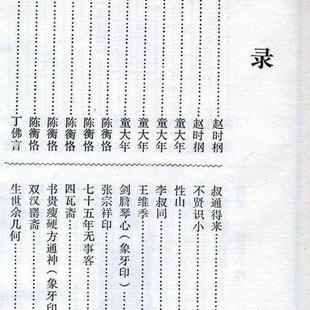 录
赵时㭎
赵时㭎
童大年
童大年
童大年
童大年
陈衡恪
陈衡恪
陈衡恪
陈衡恪
陈衡恪
丁佛言
叔通得来
不贤识小
性山
李叔同
王维季
剑膽琴心（象牙印）
张宗祥印
七十五年无事客
四瓦斋
书贵瘦硬方通神（象牙印）
双汉罂斋
生世余几何